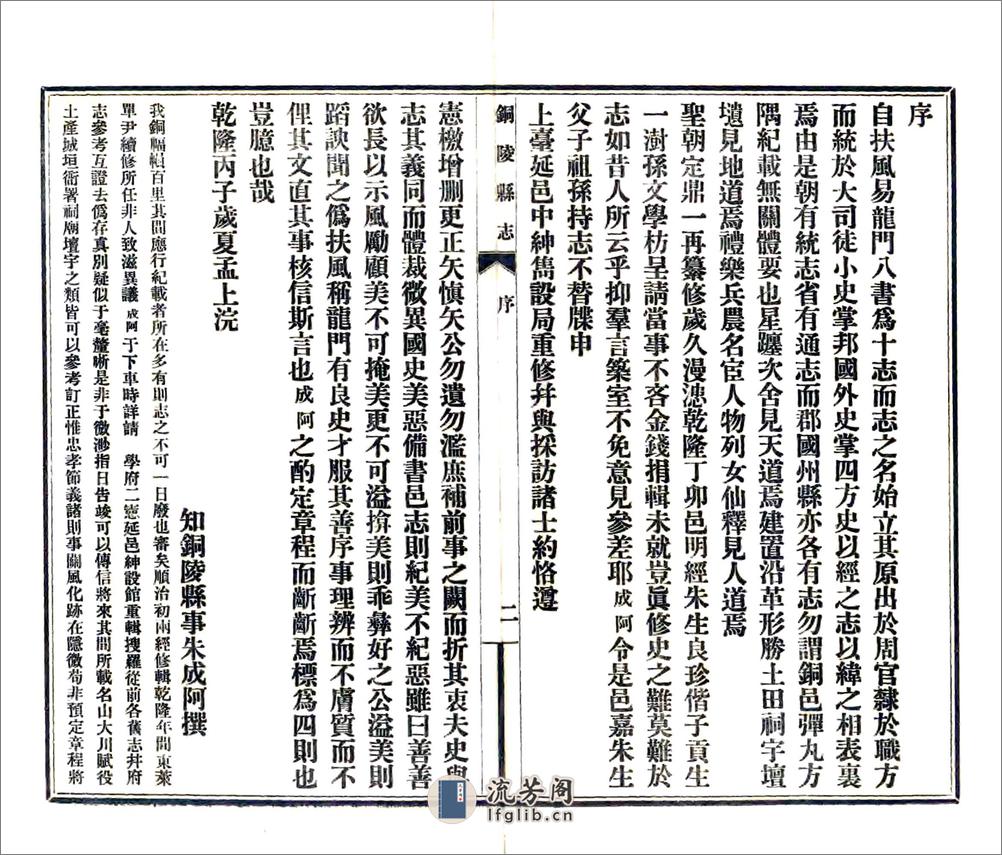 序
自扶風易龍門八書爲十志而志之名始立其原出於周官隸於職方
而統於大司徒小史掌邦國外史掌四方史以經之志以緯之相表裏
焉由是朝有統志省有通志而郡國州縣亦各有志勿謂銅邑彈丸方
隅紀載無關體要也星躔次舍見天道焉建置沿革形勝土田祠宇壇
壝見地道焉禮樂兵農名宦人物列女仙釋見人道焉
聖朝定鼎一再纂修歲久漫漶乾隆丁卯邑明經朱生良珍偕子貢生
一澍孫文學枋呈請當事不吝金錢捐輯未就豈眞修史之難莫難於
志如昔人所云乎抑羣言築室不免意見參差耶成阿令是邑嘉朱生
父子祖孫持志不替牒申
上臺延邑中紳雋設局重修幷與採訪諸士約恪遵
銅陵縣志
序
二
憲檄增删更正矢愼矢公勿遺勿濫庶補前事之闕而折其衷夫史與
志其義同而體裁微異國史美惡備書邑志則紀美不紀惡雖曰善善
欲長以示風勵顧美不可掩美更不可溢揜美則乖彝好之公溢美則
蹈諛聞之僞扶風稱龍門有良史才服其善序事理辨而不膚質而不
俚其文直其事核信斯言也成阿之酌定章程而斷斷焉標爲四則也
豈臆也哉
乾隆丙子歲夏孟上浣
知銅陵縣事朱成阿撰
我銅幅幀百里其間應行紀載者所在多有則志之不可一日廢也審矣順治初兩經修輯乾隆年間東萊
單尹續修所任非人致滋異議成阿于下車時詳請 學府二憲延邑紳設館重輯搜羅從前各舊志幷府
志參考互證去僞存真別疑似于毫釐晰是非于微渺指日告竣可以傳信將來其間所載名山大川賦役
土產城垣衙署祠廟壇宇之類皆可以參考訂正惟忠孝節義諸則事關風化跡在隱微苟非預定章程將
流芳阁
lfglib.cn